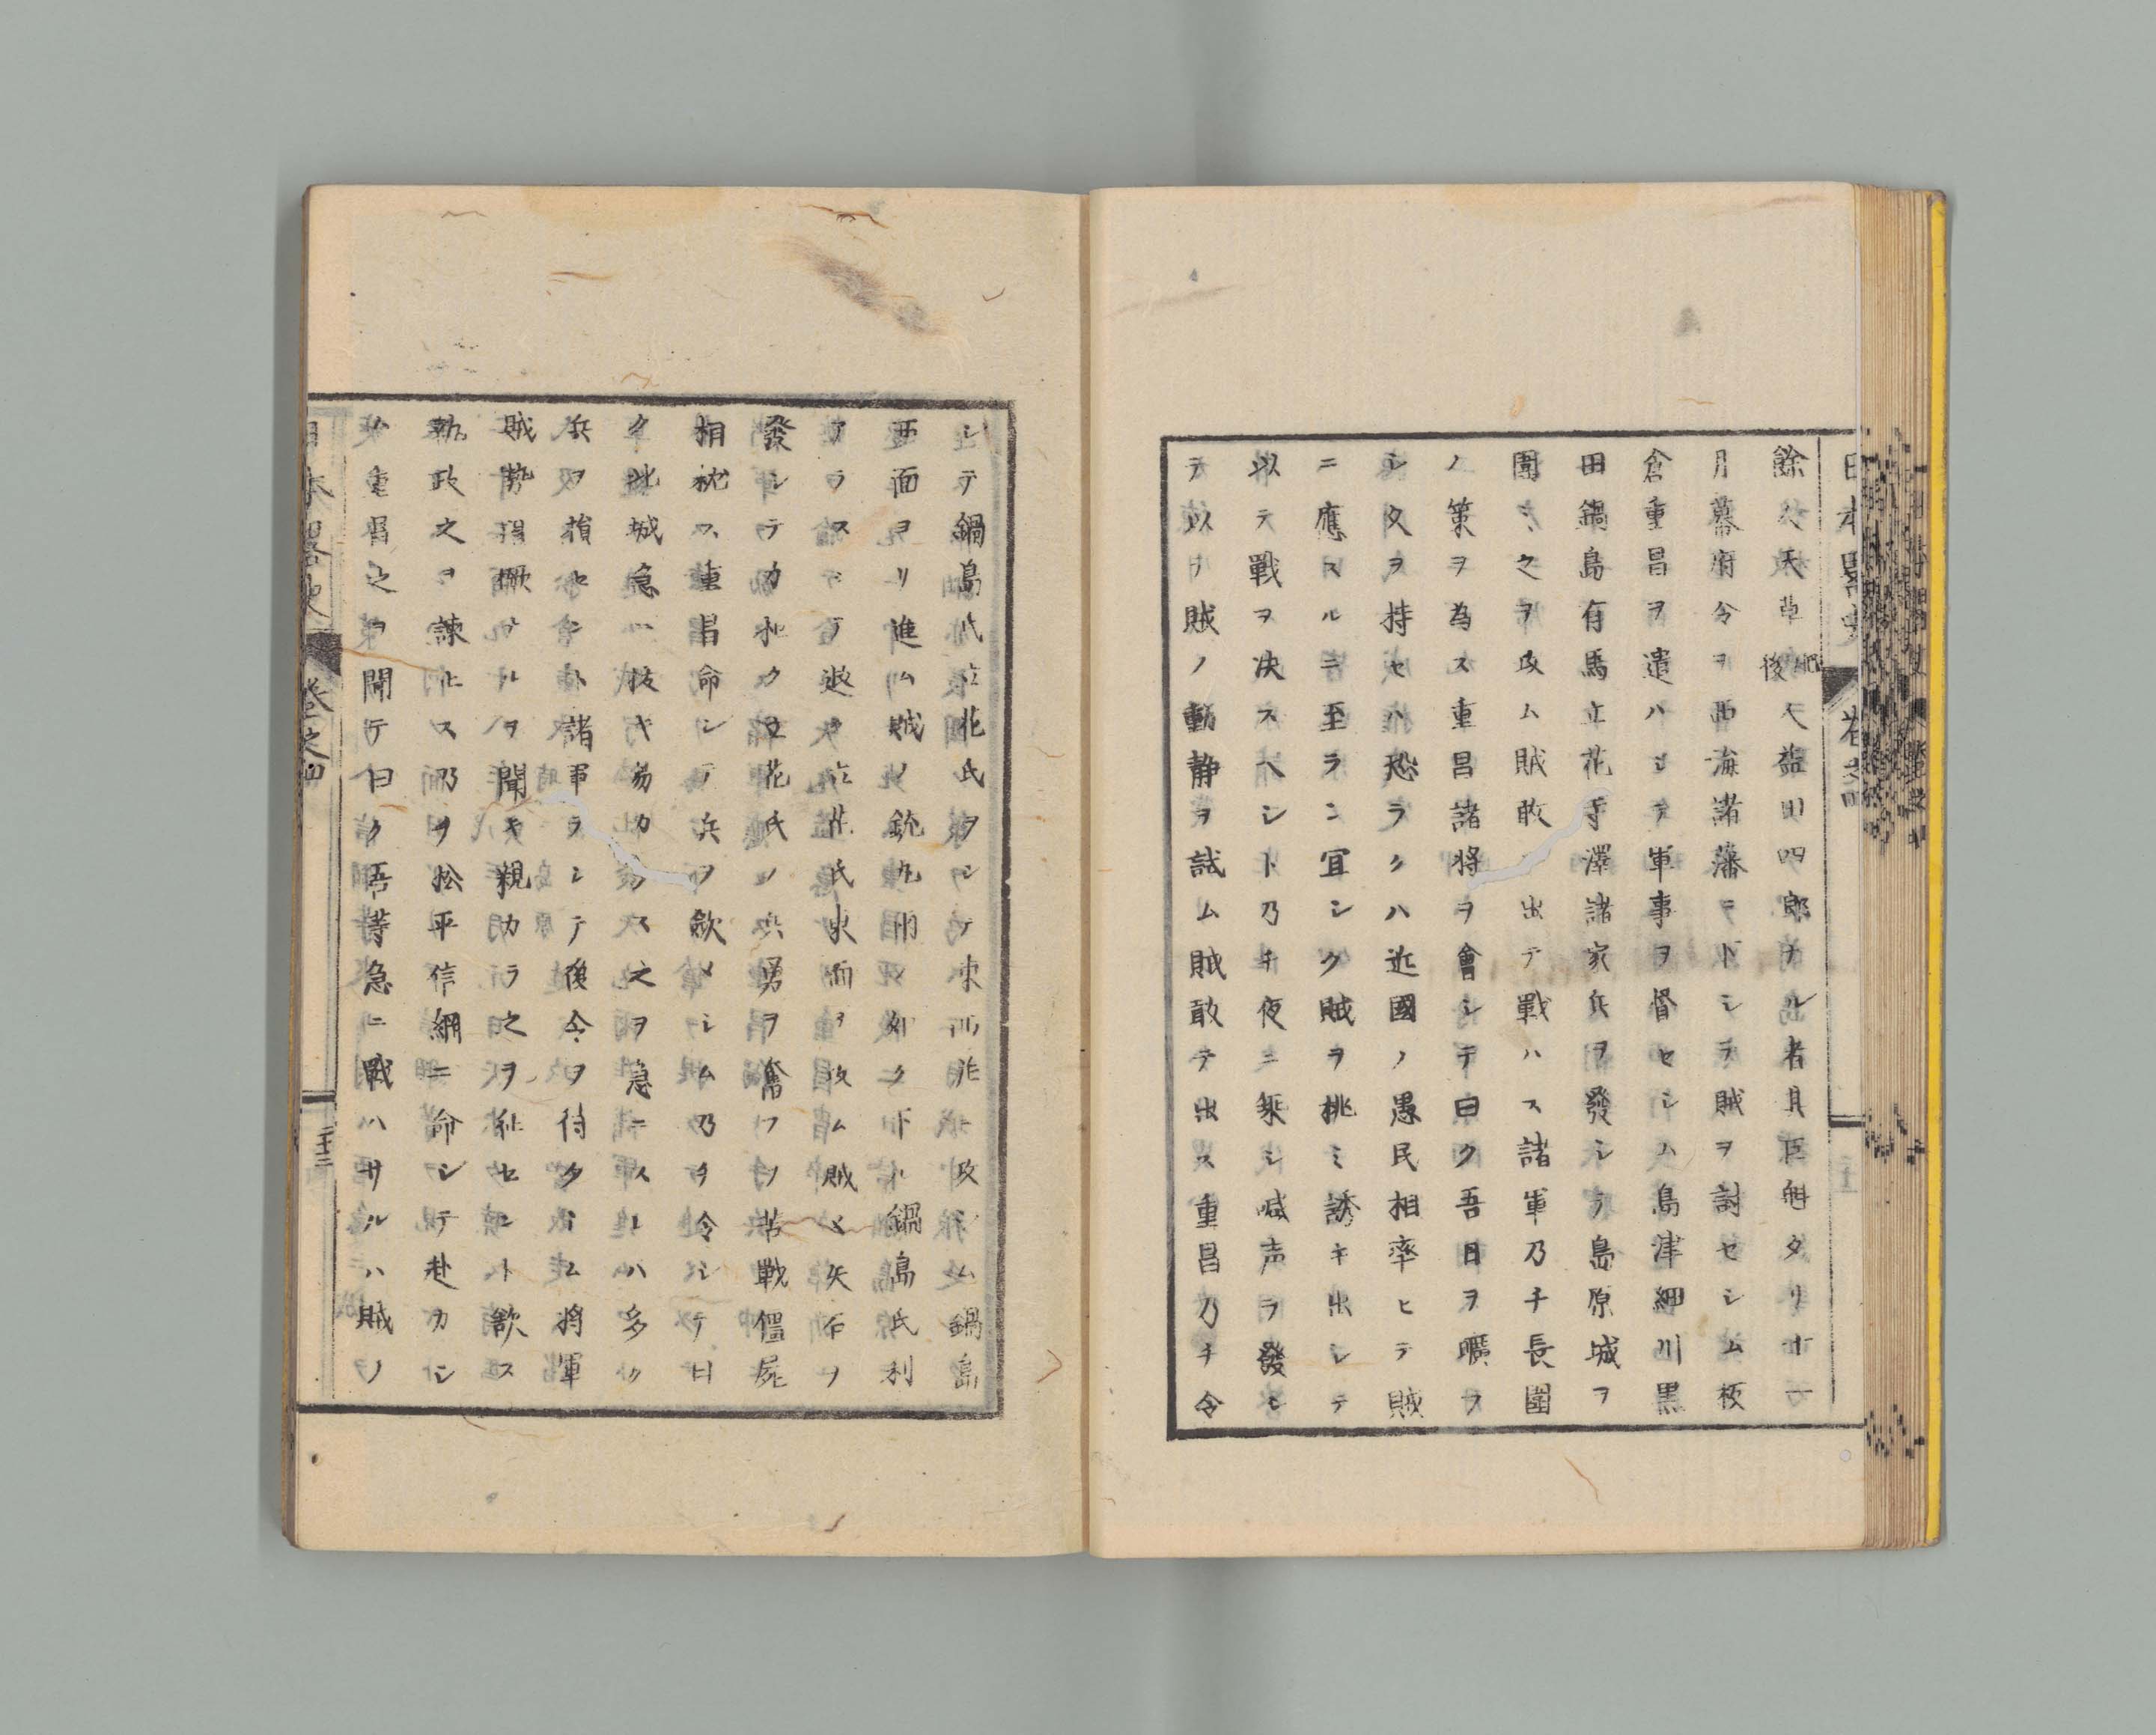 餘人天草肥後人益田四郎ナル者其巨魁タリ十一
月幕府令ヲ西海諸藩ニ下シテ賊ヲ討セシム板
倉重昌ヲ遣ハシテ軍事ヲ督セシム島津細川黒
田鍋島有馬立花寺澤諸家兵ヲ發シテ島原城ヲ
圍ミ之ヲ攻ム賊敢テ出テ戰ハス諸軍乃チ長圍
ノ策ヲ為ス重昌諸將ヲ會シテ曰ク吾日ヲ曠フ
シ久ヲ持セハ恐ラクハ近國ノ愚民相率ヒテ賊
ニ應スルニ至ラン宜シク賊ヲ挑ミ誘キ出シテ
以テ戰ヲ决スヘシト乃チ夜ニ乘シ喊声ヲ發シ
テ以テ賊ノ動静ヲ試ム賊敢テ出ス重昌乃チ令
シテ鍋島氏立花氏ヲシテ東西ヨリ攻シム鍋島
西面ヨリ進ム賊ノ銃丸雨ノ如ク下ル鍋島氏利
アラスシテ退ク立花氏東面ヲ攻ム賊又矢石ヲ
發シテカ拒ク立花氏ノ兵勇ヲ奮フテ苦戰僵屍
相枕ス重昌命シテ兵ヲ歛メシム乃チ令シテ曰
ク此城急ニ拔キ易カラス之ヲ急ニスレハ多ク
兵ヲ損セン諸軍ヲシテ後令ヲ待タシム將軍
賊勢猖獗ナルヲ聞キ親カラ之ヲ征セント欲ス
執政之ヲ諫止ス乃チ松平信綱ニ命シテ赴カシ
ム重昌之ヲ聞テ曰ク吾等急ニ戰ハサルハ賊ノ
日本畧史 卷之四